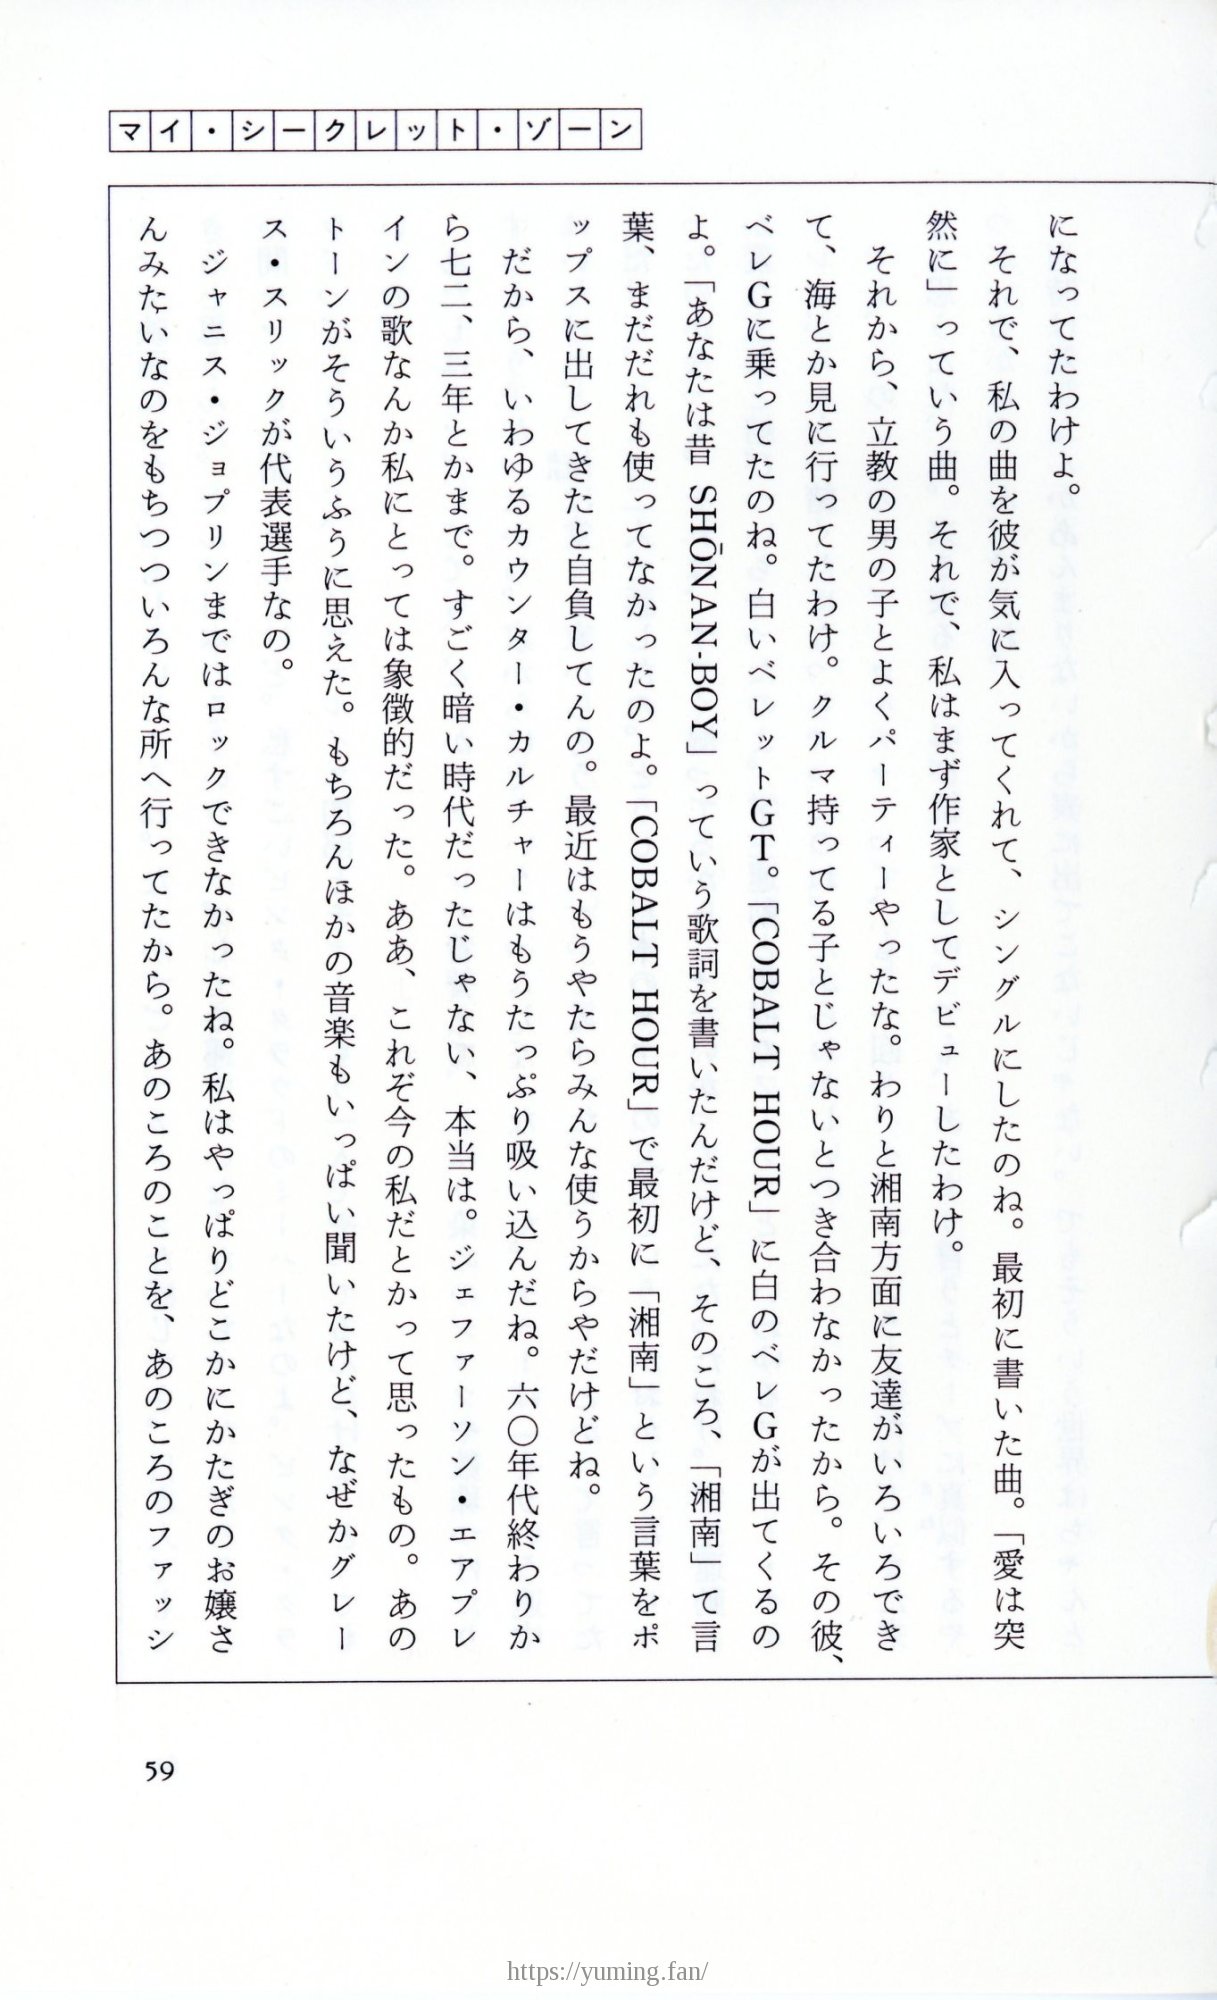 マイ・シークレット・ゾーン
になってたわけよ。
それで、私の曲を彼が気に入ってくれて、シングルにしたのね。最初に書いた曲。「愛は突
然に」っていう曲。それで、私はまず作家としてデビューしたわけ。
それから、立教の男の子とよくパーティーやったな。わりと湘南方面に友達がいろいろでき
て、海とか見に行ってたわけ。クルマ持ってる子とじゃないとつき合わなかったから。その彼、
ベレGに乗ってたのね。白いベレットGT。「COBALT HOUR」に白のベレGが出てくるの
よ。「あなたは昔 SHŌNAN-BOY」っていう歌詞を書いたんだけど、そのころ、「湘南」て言
葉、まだだれも使ってなかったのよ。「COBALT HOUR」で最初に「湘南」という言葉をポ
ップスに出してきたと自負してんの。最近はもうやたらみんな使うからやだけどね。
だから、いわゆるカウンター・カルチャーはもうたっぷり吸い込んだね。六〇年代終わりか
ら七二、三年とかまで。すごく暗い時代だったじゃない、本当は。ジェファーソン・エアプレ
インの歌なんか私にとっては象徴的だった。ああ、これぞ今の私だとかって思ったもの。あの
トーンがそういうふうに思えた。もちろんほかの音楽もいっぱい聞いたけど、なぜかグレー
ス・スリックが代表選手なの。
ジャニス・ジョプリンまではロックできなかったね。私はやっぱりどこかにかたぎのお嬢さ
んみたいなのをもちつついろんな所へ行ってたから。あのころのことを、あのころのファッシ
59
https://yuming.fan/